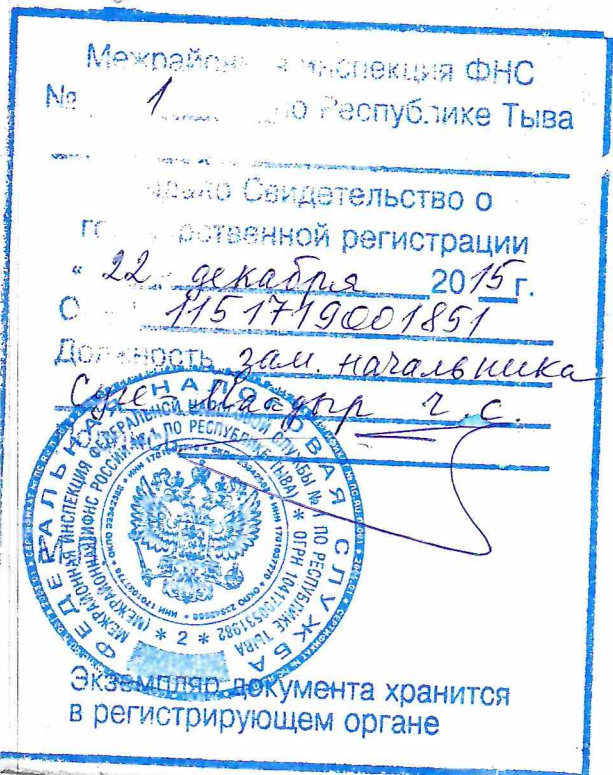 Межрайонная инспекция ФНС
№ 1 по Республике Тыва
Свидетельство о
государственной регистрации
" 22 " декабря 2015 г.
1151719001851
Должность зам. начальника
Ч.С.
ФЕДЕРАЛЬНАЯ НАЛОГОВАЯ СЛУЖБА
МЕЖРАЙОННАЯ ИНСПЕКЦИЯ ФЕДЕРАЛЬНОЙ НАЛОГОВОЙ СЛУЖБЫ № 1 ПО РЕСПУБЛИКЕ ТЫВА * ОГРН 1041700531982
(МЕЖРАЙОННАЯ ИФНС РОССИИ № 1 ПО РЕСПУБЛИКЕ ТЫВА)
* 2 *
Экземпляр документа хранится
в регистрирующем органе